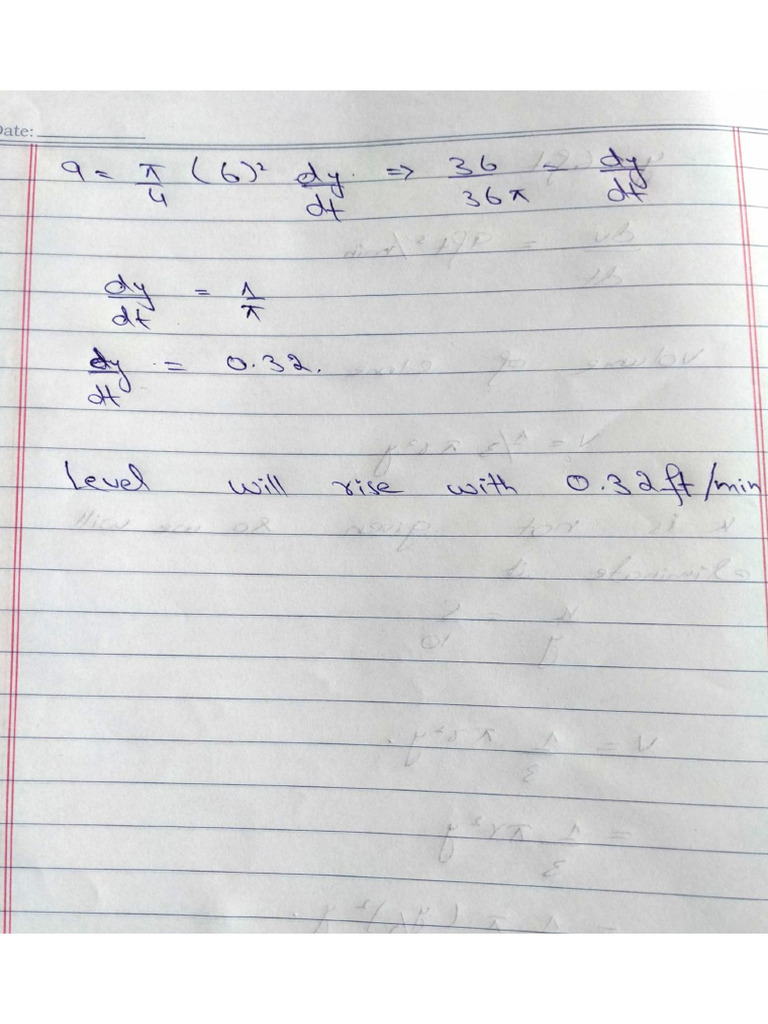 Date:
9 = π/4 (6)² dy/dt => 36/36π = dy/dt
dy/dt = 1/π
dy/dt = 0.32.
Level will rise with 0.32ft/min